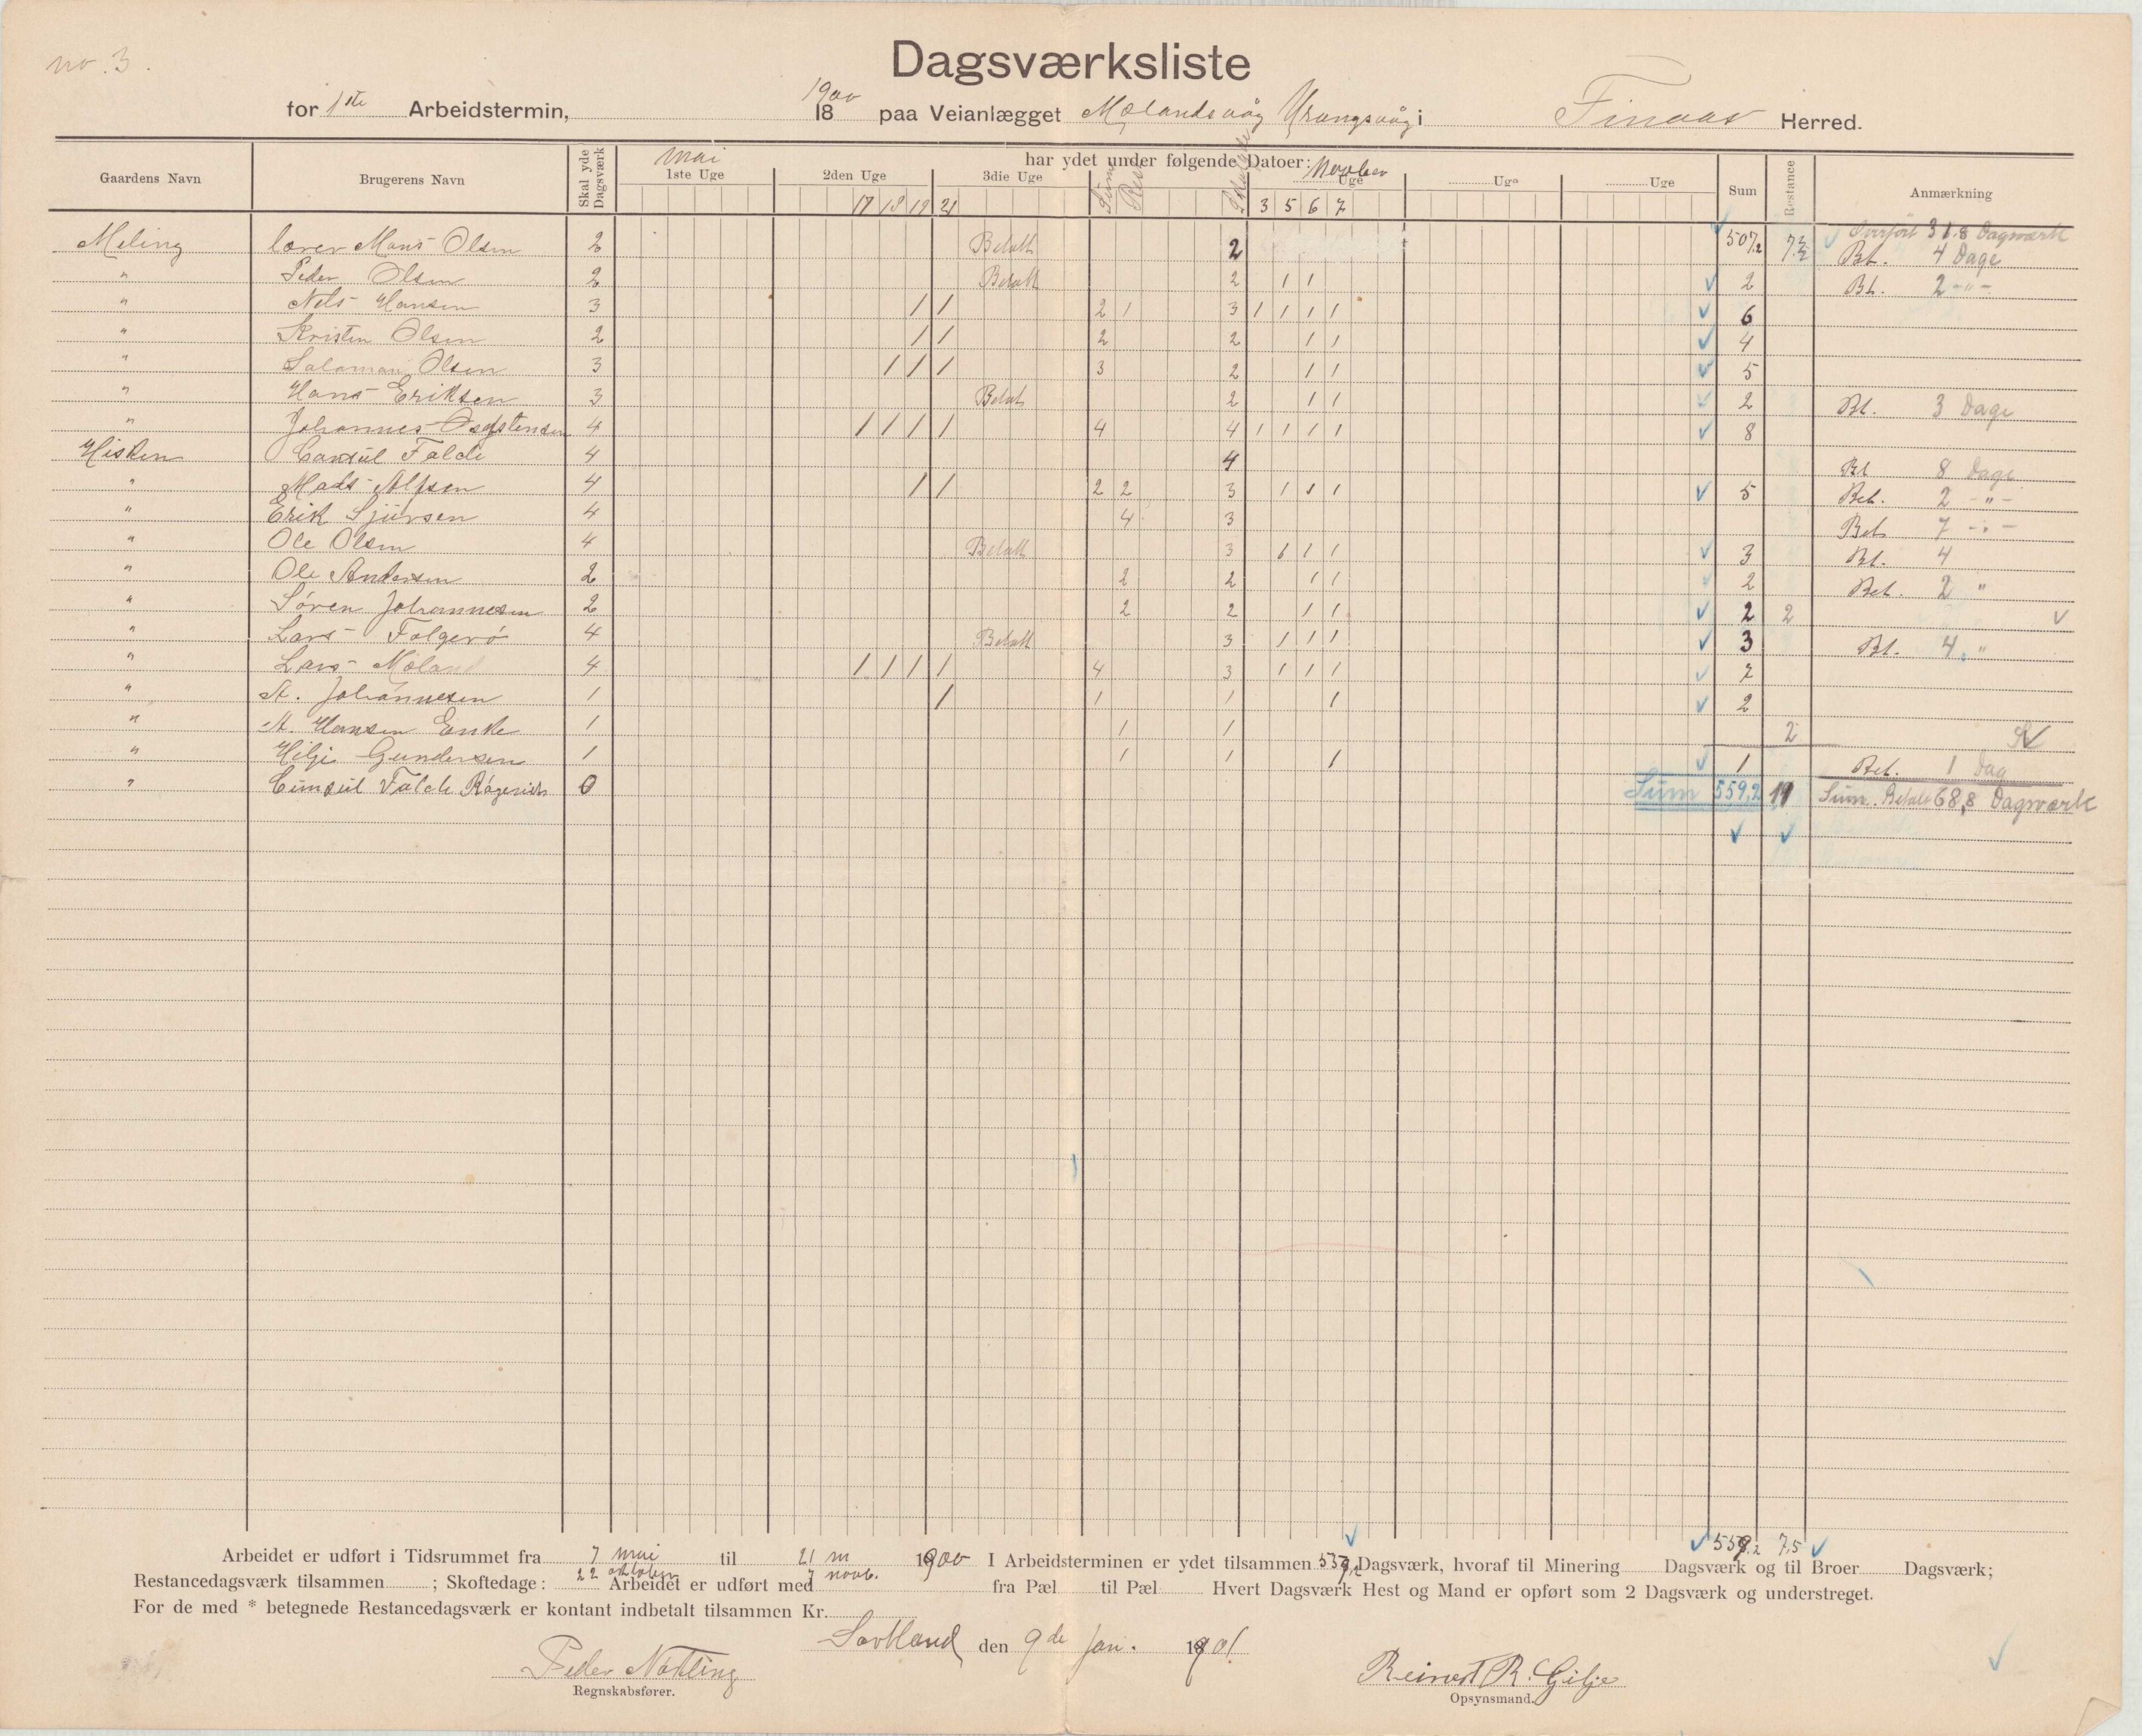 no. 3.
Dagsværksliste
for 1ste Arbeidstermin, 1900 18 paa Veianlægget Mælandsvåg Vrangsvåg i Finaas Herred.
Gaardens Navn Brugerens Navn Skal yde Dagsværk har ydet under følgende Datoer: Sum Restance Anmærkning
mai 1ste Uge 2den Uge 3die Uge Sum Rest Uge Uge Uge
17 18 19 21 3 5 6 7
Overført 31.8 Dagværk
Meling Mons Olsen 2 Betalt 2 507,2 7½ Bt. 4 Dage
" Peder Olsen 2 Betalt 2 1 1 2 Bt. 2 -"-
" Nels Hansen 3 / / 2 1 3 1 1 1 1 6
" Kristen Olsen 2 / / 2 2 1 1 4
" Salamon Olsen 3 / / / 3 2 1 1 5
" Hans Eriksen 3 Betalt 2 1 1 2 Bt. 3 Dage
" Johannes 4 / / / / 4 4 1 1 1 1 8
Hisken Consul Falde 4 4 Bt 8 Dage
" Mads Alfsen 4 / / 2 2 3 1 1 1 5 Bet. 2 -"-
" Erik Sjursen 4 4 3 Bet. 7 -"-
" Ole Olsen 4 Betalt 3 1 1 1 3 Bt. 4
" Ole Andersen 2 2 2 1 1 2 Bet. 2 "
" Søren Johannesen 2 2 2 1 1 2 2
" Lars Folgerø 4 Betalt 3 1 1 1 3 Bt. 4 "
" Lars Mæland 4 / / / / 4 3 1 1 1 7
" A. Johannesen 1 / 1 1 1 2
" A. Hansen Enke 1 1 1 2
" Hilje Gundersen 1 1 1 1 1 Bet. 1 Dag
" Cunsul Falde 0 Sum 559,2 19 Sum Betalt 68,8 Dagværk
559,2 7,5
Arbeidet er udført i Tidsrummet fra 7 mai til 21 m 1900 I Arbeidsterminen er ydet tilsammen 559,2 Dagsværk, hvoraf til Minering Dagsværk og til Broer Dagsværk;
22 oktober 7 novb.
Restancedagsværk tilsammen ; Skoftedage: Arbeidet er udført med fra Pæl til Pæl Hvert Dagsværk Hest og Mand er opført som 2 Dagsværk og understreget.
For de med * betegnede Restancedagsværk er kontant indbetalt tilsammen Kr.
Sortland den 9de Jan. 1901
Peder Nøtling Reinert R. Gilje
Regnskabsfører. Opsynsmand.